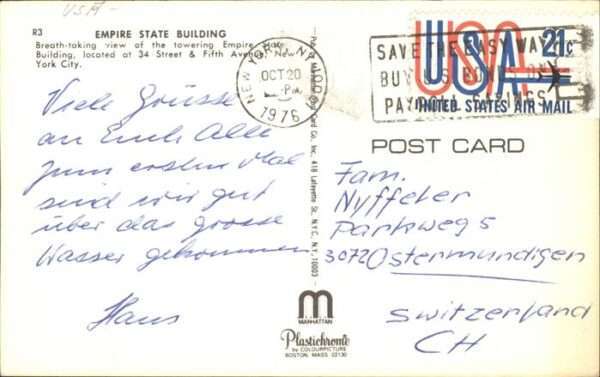 USA-
R3 EMPIRE STATE BUILDING
Breath-taking view of the towering Empire State
Building, located at 34 Street & Fifth Avenue, New
York City.
Viele Grüsse
an Euch Alle
zum ersten Mal
sind wir gut
über das grosse
Wasser gekommen
Hans
NEW YORK, NY
OCT 20
PM
1976
SAVE THE EASY WAY
BUY U.S. BONDS
PAYROLL SAVINGS
USA 21c
UNITED STATES AIR MAIL
Card Co. Inc. 418 Lafayette St. NYC, N.Y. 10003
POST CARD
Fam.
Nyffeler
Parkweg 5
3072 Ostermundigen
Switzerland
CH
m
MANHATTAN
Plastichrome
by COLOURPICTURE
BOSTON, MASS 02130